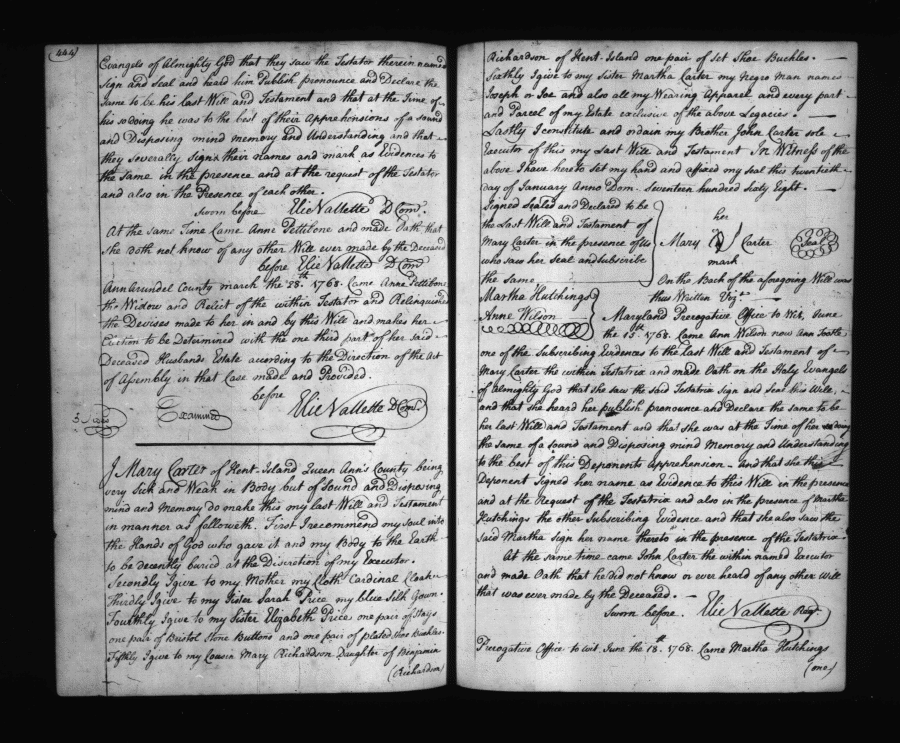 444
Evangels of Almighty God that they saw the Testator therein named
Sign and Seal and heard him Publish pronounce and Declare the
Same to be his Last Will and Testament and that at the Time of
his so Doing he was to the best of their Apprehensions of a sound
and Disposing mind memory and Understanding and that
they severally Sign'd their names and mark as Evidences to
the same in the presence and at the request of the Testator
and also in the Presence of each other.
Sworn before Elie Vallette D Comy.
At the same Time Came Anne Pettibone and made Oath that
She Doth not know of any other Will ever made by the Deceased
before Elie Vallette D Comy
Ann Arundel County march the 28th. 1768. Came Anne Pettibone
the Widow and Relict of the within Testator and Relinquished
the Devises made to her in and by this Will and makes her
Election to be Determined with the one third part of her said
Deceased Husbands Estate according to the Direction of the Act
of Assembly in that Case made and Provided.
before
Elie Vallette D Comy.
3 Sides
Examined
I Mary Carter of Kent Island Queen Ann's County being
very Sick and Weak in Body but of Sound and Disposing
mind and Memory do make this my last Will and Testament
in manner as followeth. First I recommend my Soul into
the Hands of God who gave it and my Body to the Earth
to be decently buried at the Discretion of my Executor.
Secondly I give to my Mother my Cloth Cardinal Cloak
Thirdly I give to my Sister Sarah Price my blue Silk Gown
Fourthly I give to my Sister Elizabeth Price one pair of Stays
one pair of Bristol Stone Buttons and one pair of plated Shoe Buckles.
Fifthly I give to my Cousin Mary Richardson Daughter of Benjamin
(Richardson)
Richardson of Kent Island one pair of Set Shoe Buckles.
Sixthly I give to my Sister Martha Carter my Negro Man names
Joseph or Joe and also all my Wearing Apparel and every part
and Parcel of my Estate exclusive of the above Legacies.
Lastly I constitute and ordain my Brother John Carter sole
Executor of this my Last Will and Testament In Witness of the
above I have hereto set my hand and affixed my Seal this twentieth
day of January Anno Dom. Seventeen hundred Sixty Eight.
Signed Sealed and Declared to be
the Last Will and Testament of
Mary Carter in the presence of us
who saw her Seal and subscribe
the same
her
Mary Carter Seal
mark
On the Back of the aforegoing Will was
thus Written Vizt.
Martha Hutchings
Anne Wilson
Maryland Prerogative Office to Wit, June
the 15th. 1768. Came Ann Wilson now Ann Tootle
one of the Subscribing Evidences to the Last Will and Testament of
Mary Carter the within Testatrix and made Oath on the Holy Evangels
of Almighty God that she saw the said Testatrix Sign and Seal this Will,
and that she heard her publish pronounce and Declare the same to be
her last Will and Testament and that she was at the Time of her so doing
the same of a sound and Disposing mind Memory and Understanding
to the best of this Deponents apprehension. And that she this
Deponent Signed her name as Evidence to this Will in the presence
and at the Request of the Testatrix and also in the presence of Martha
Hutchings the other Subscribing Evidence and that she also saw the
said Martha sign her name thereto in the presence of the Testatrix.
At the same time came John Carter the within named Executor
and made Oath that he did not know or ever heard of any other Will
that was ever made by the Deceased.
Sworn before Elie Vallette Regr.
Prerogative Office to wit. June the 18th. 1768. Came Martha Hutchings
(one)